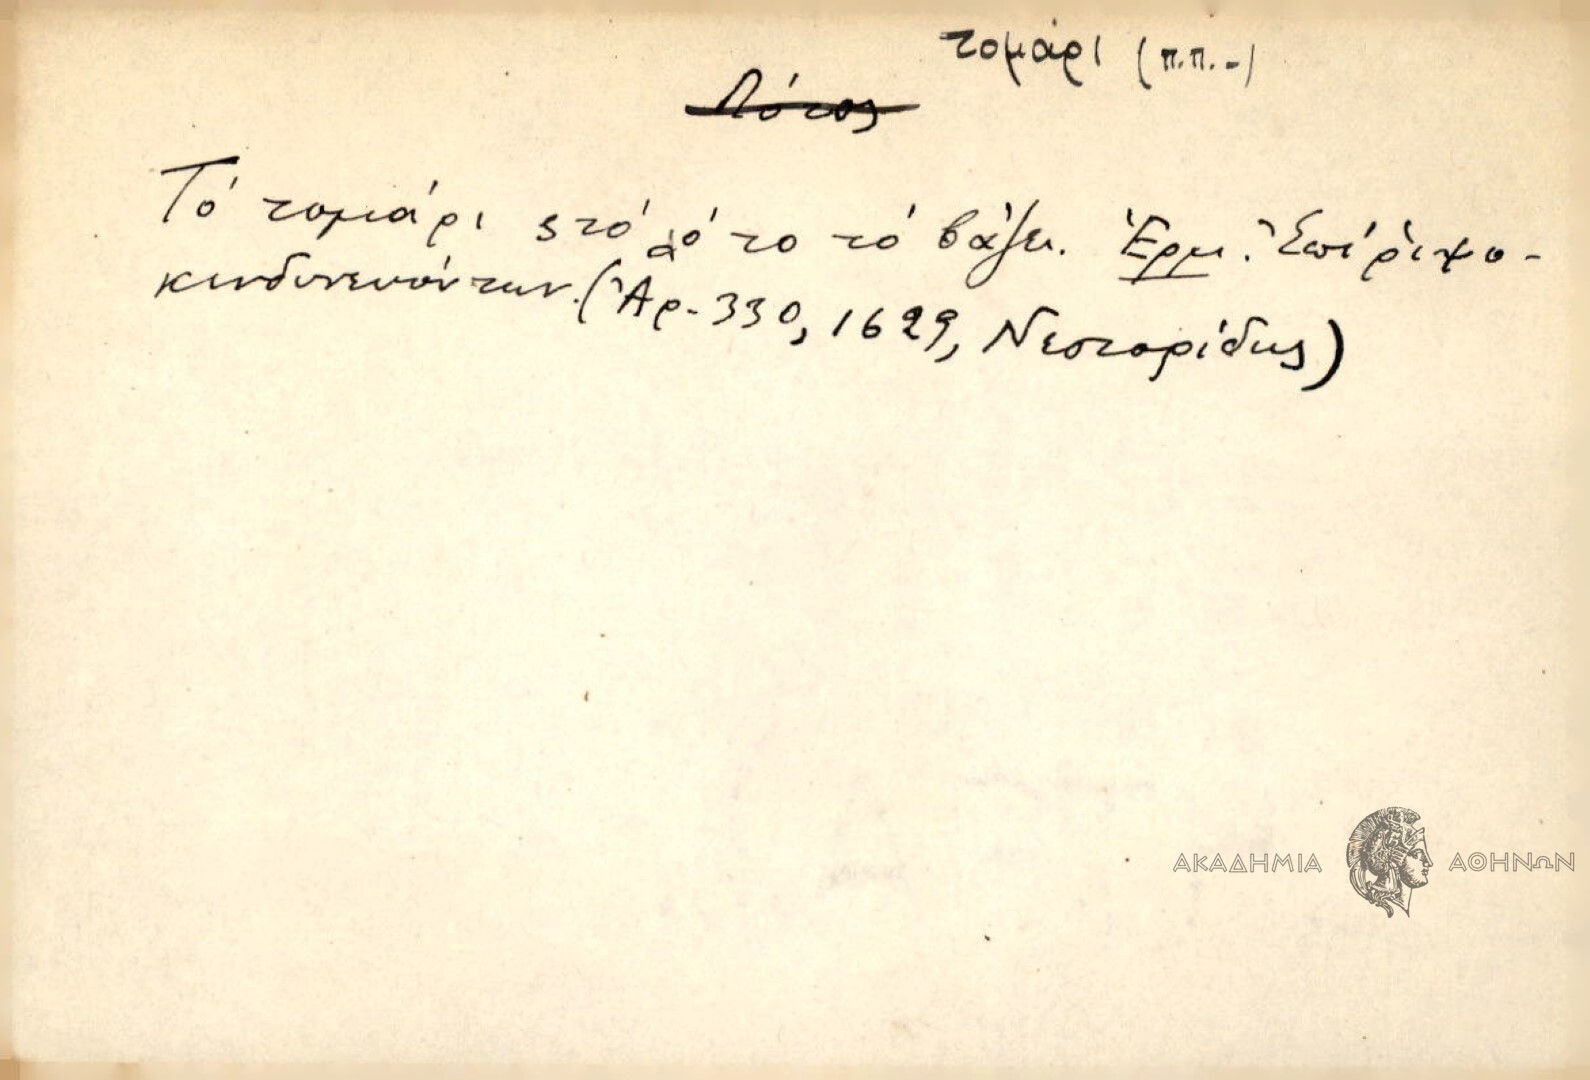 τομάρι (π.π.-)
Λότος
Τό τομάρι στό λότο τό βάζει. Ἑρμ. Ἐπί ῥιψο-
κινδυνευόντων. (Ἀρ. 330, 1629, Νεστορίδης)
ΑΚΑΔΗΜΙΑ ΑΘΗΝΩΝ